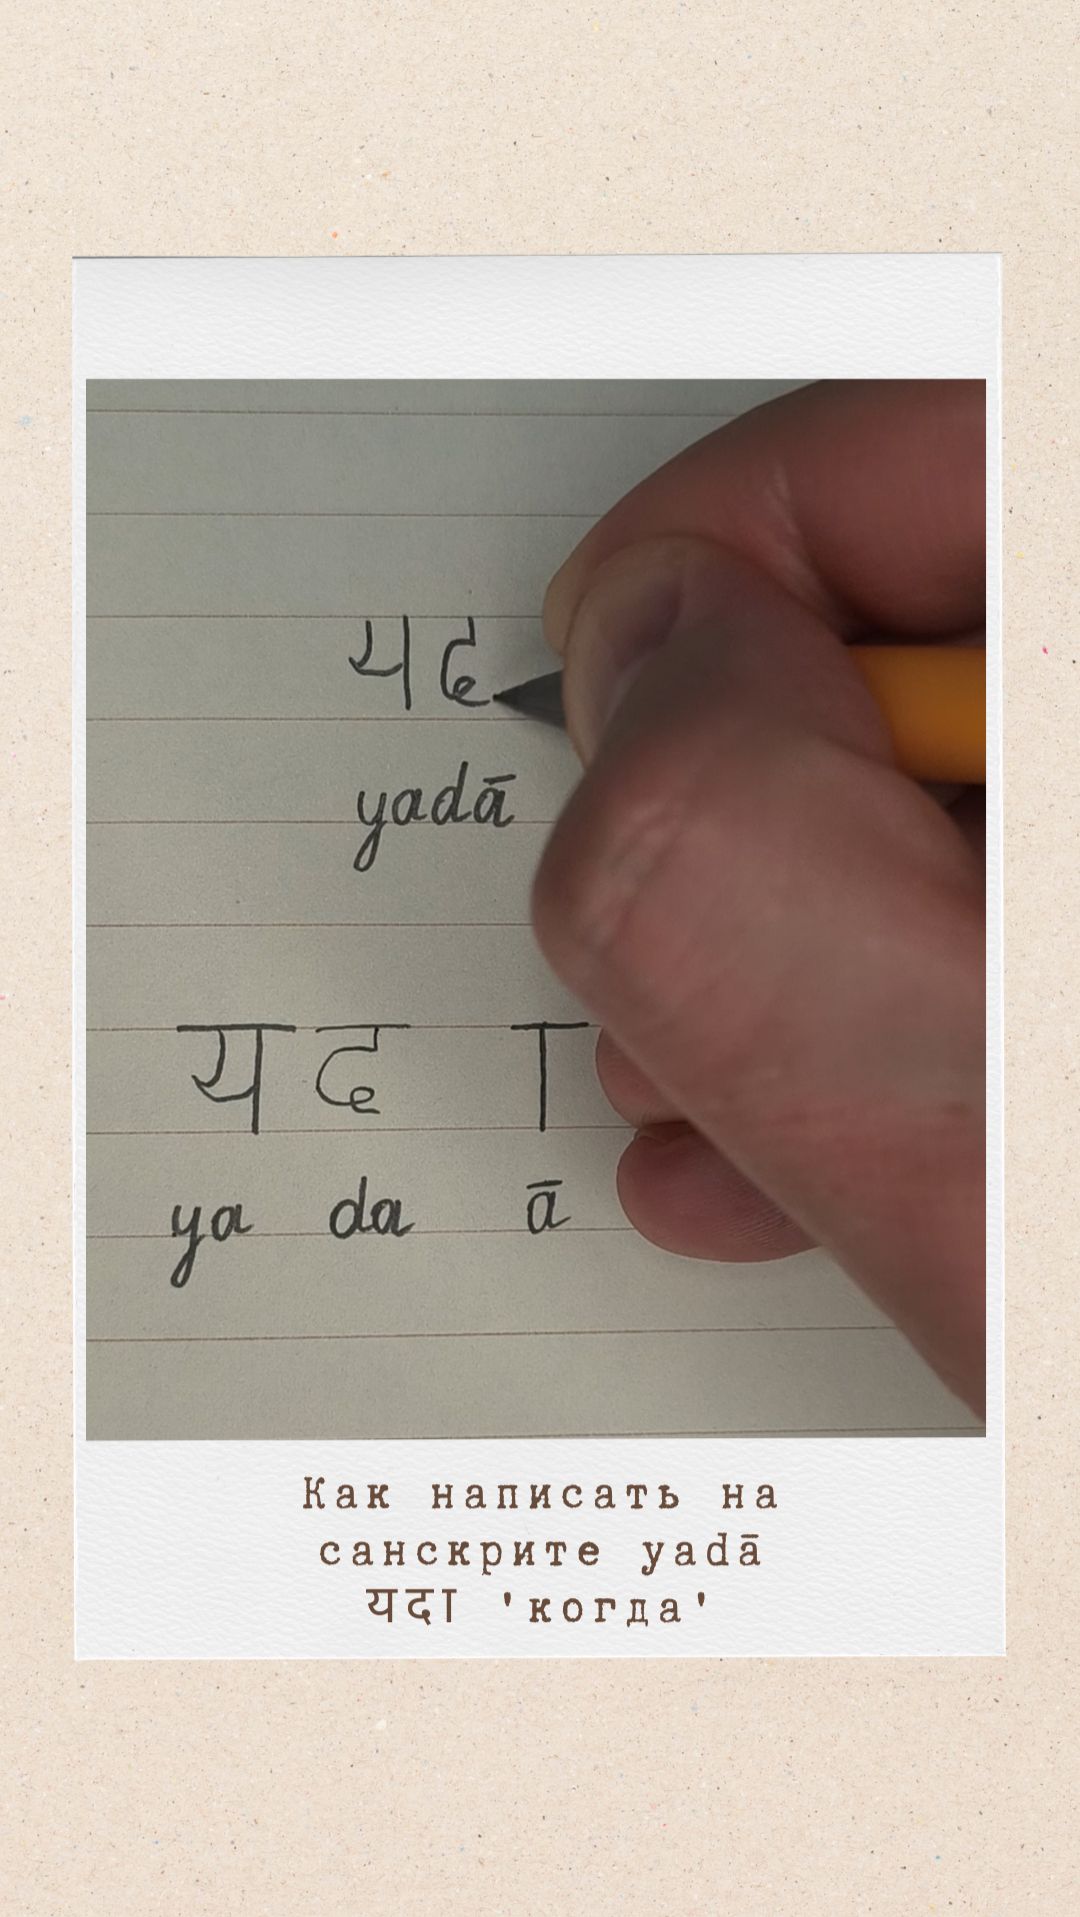 यद
yadā
य द ा
ya da ā
Как написать на
санскрите yadā
यदा 'когда'